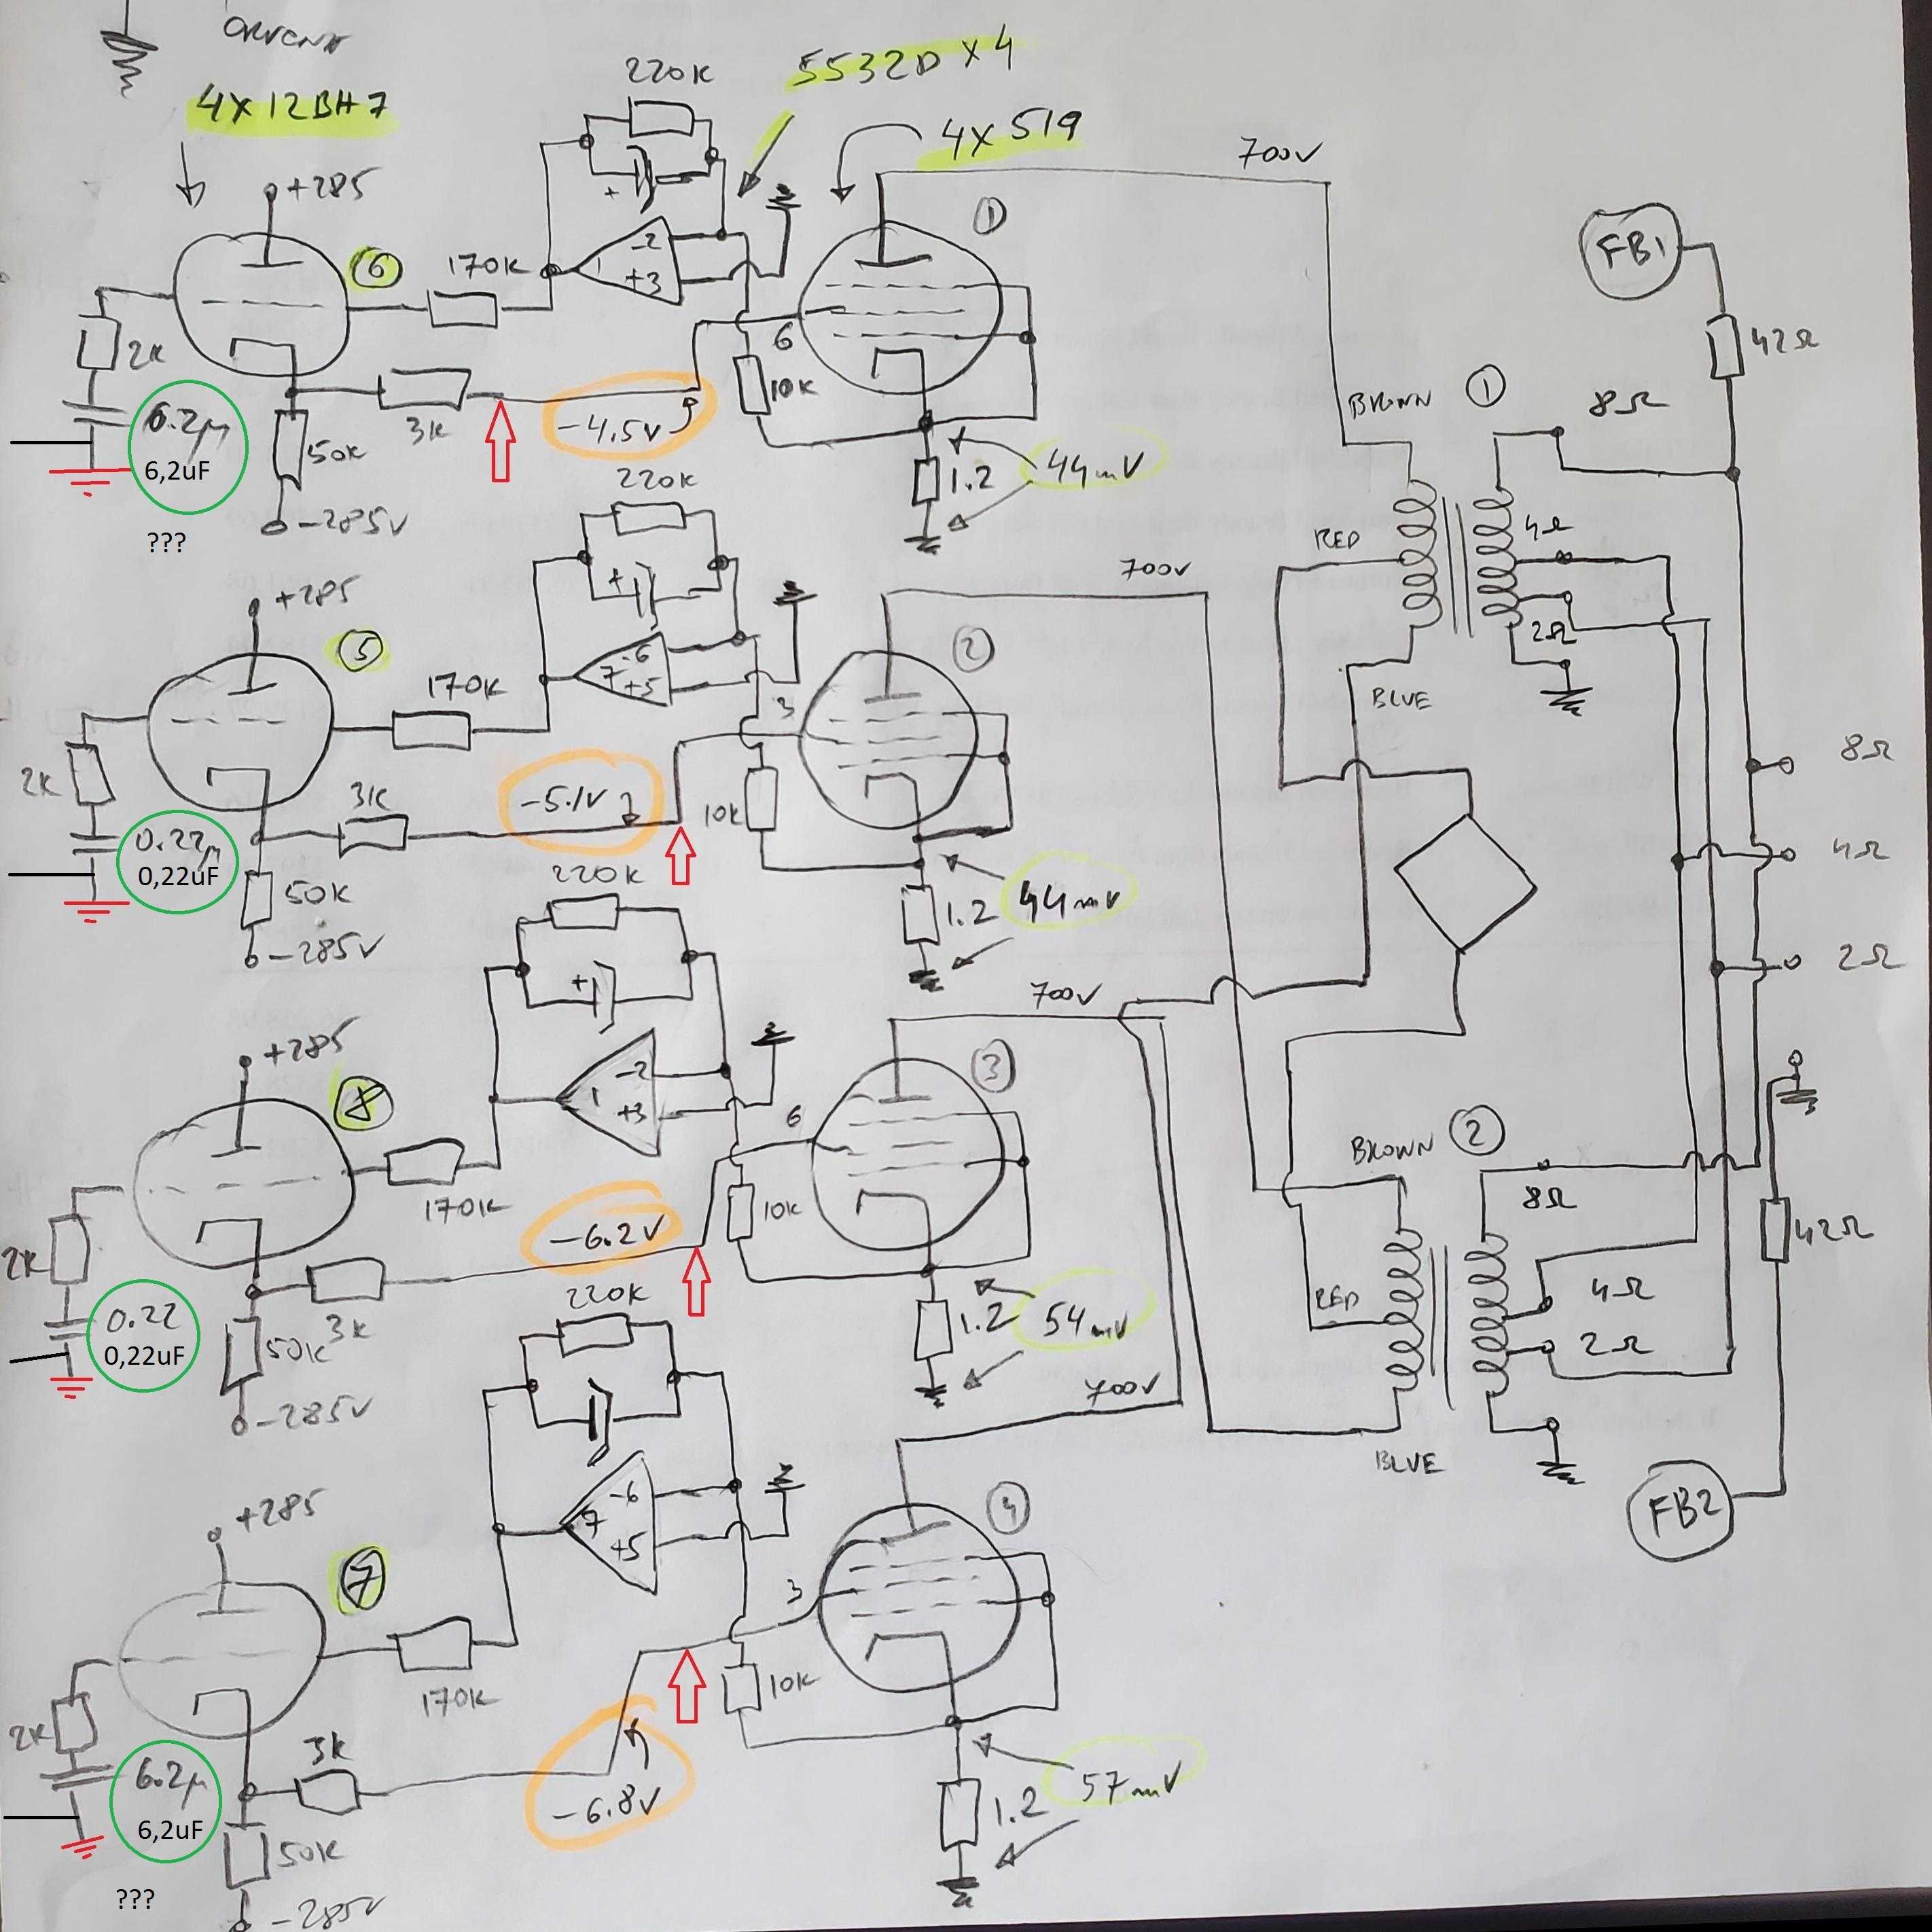 4X12BH7
5532D X4
4X519
220K
+
-2
1
+3
+285
6
170K
2K
3K
50K
-285V
6.2µ
6,2uF
???
-4.5V
6
10K
1
700V
1.2
44mV
FB1
42Ω
BROWN
1
8Ω
RED
4Ω
2Ω
BLUE
220K
+
-6
7
+5
+285
5
170K
2K
3K
50K
-285V
0.22µ
0,22uF
-5.1V
3
10K
2
700V
1.2
44mV
8Ω
4Ω
2Ω
220K
+
-2
1
+3
+285
8
170K
2K
3K
50K
-285V
0.22
0,22uF
-6.2V
6
10K
3
700V
1.2
54mV
BROWN
2
8Ω
RED
4Ω
2Ω
BLUE
42Ω
FB2
220K
-6
7
+5
+285
7
170K
2K
3K
50K
-285V
6.2µ
6,2uF
???
-6.8V
3
10K
4
700V
1.2
57mV